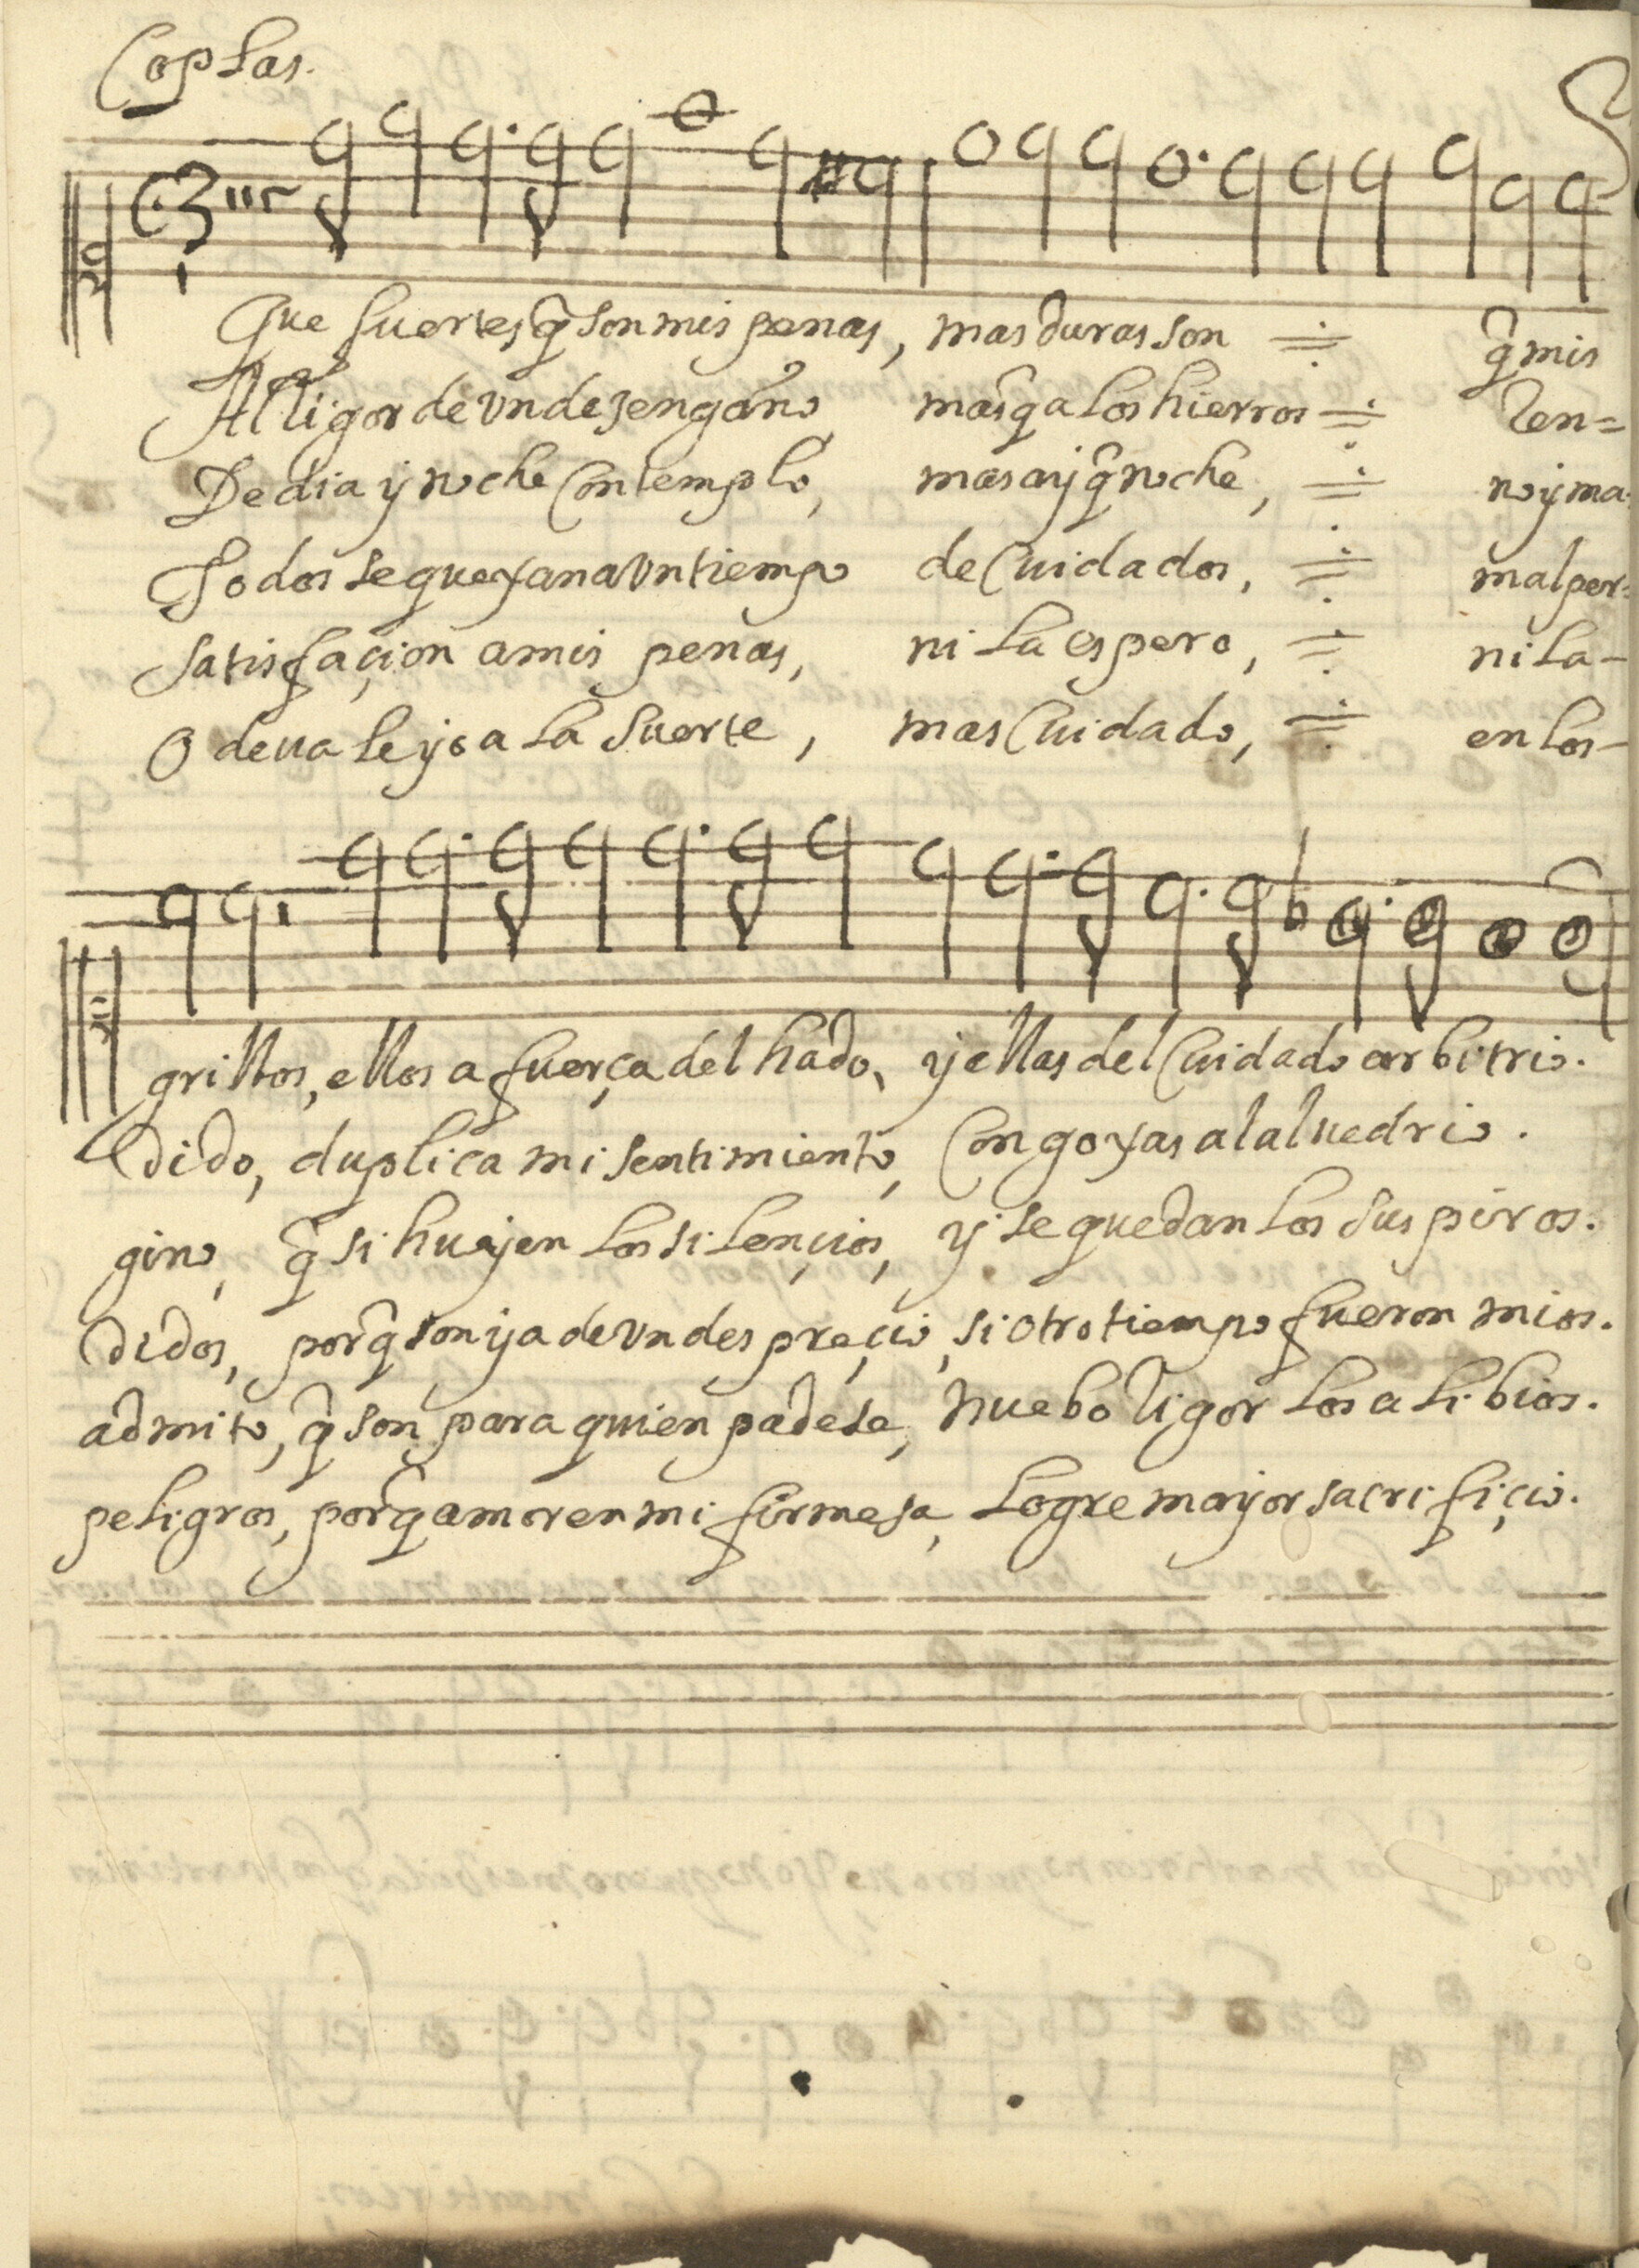 Coplas.
Que fuertes q̃ son mis penas, mas duras son q̃ mis
Al rigor de vn desengaño, mas q̃ a los hierros ren=
De dia y noche Contemplo, mas ay q̃ noche, no yma-
Todos se quexan a vn tiempo de Cuidados, mal per=
Satisfaçion a mis penas, ni la espero, ni la-
O deua le yo a la Suerte, mas Cuidado, en los-
grillos, ellos a fuerça del hado, y ellas del Cuidado arbitrio.
dido, duplica mi sentimiento, Congoxas al aluedrio.
gino, q̃ si huyen los silençios, y se quedan los suspiros.
didos, porq̃ son ya de vn despreçio, si otro tiempo fueron mios.
admito, q̃ son para quien padese, nuebo rigor los alibios.
peligros, porq̃ amor en mi firmesa, logre mayor sacrifiçio.